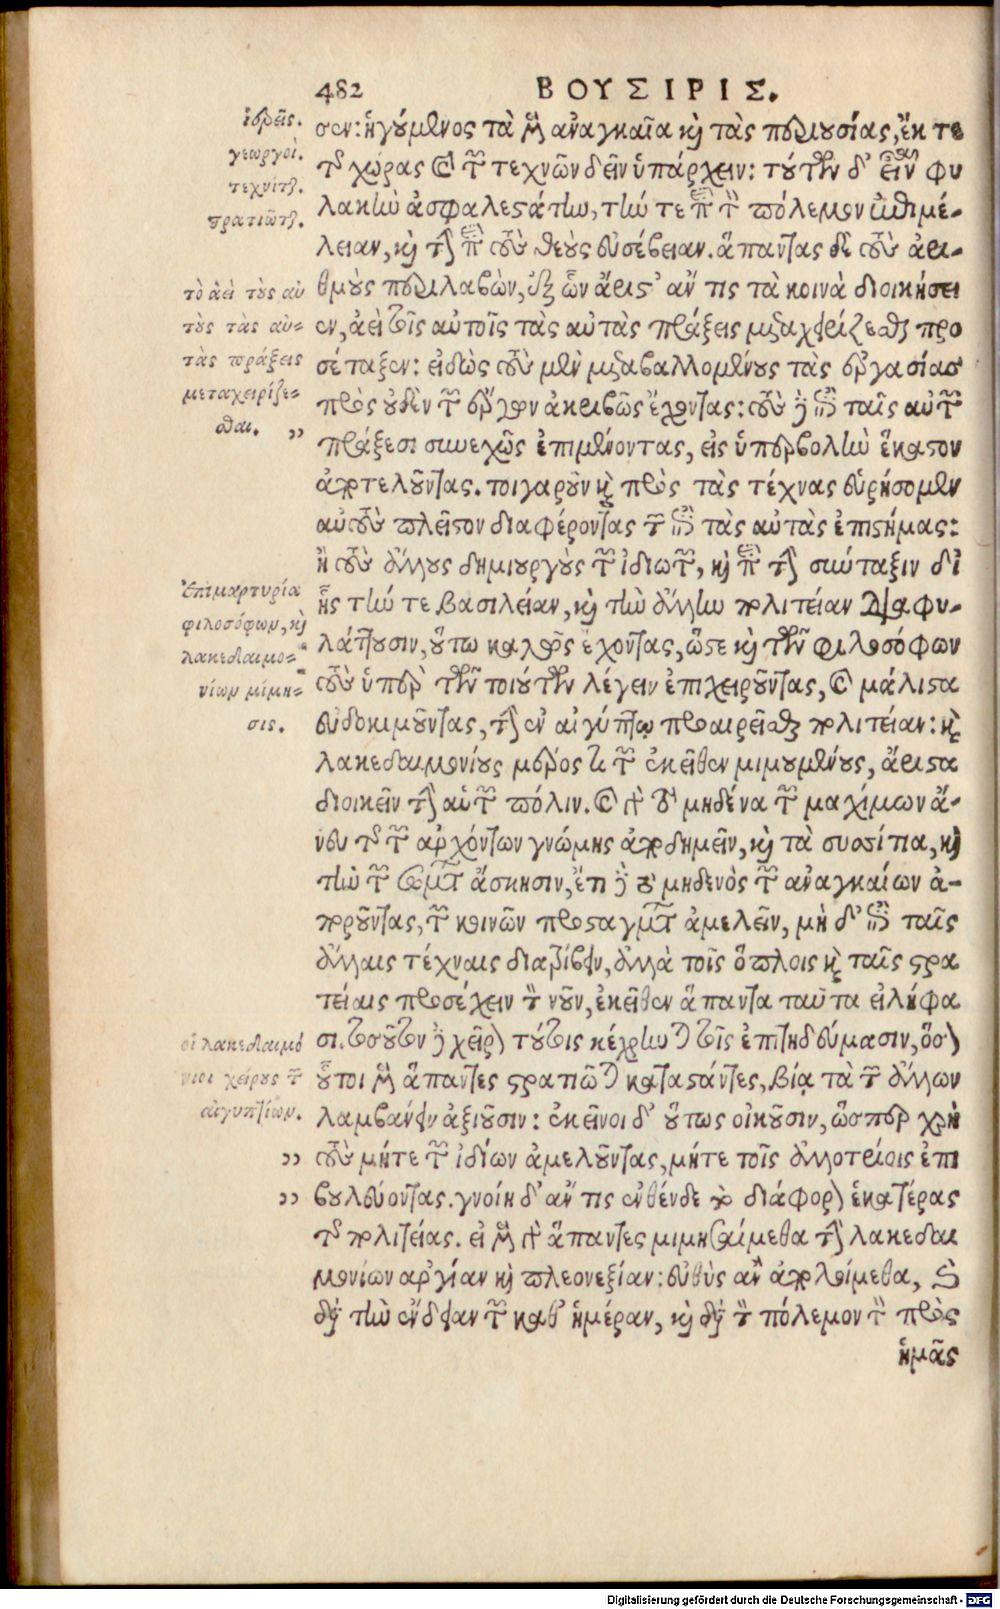 482 ΒΟΥΣΙΡΙΣ.
ἱερεῖς.
γεωργοί.
τεχνίται.
στρατιῶται.
τὸ ἀεὶ τοὺς αὐ
τοὺς τὰς αὐ-
τὰς πράξεις
μεταχειρίζε-
σθαι. ,,
Ἐπιμαρτυρία
φιλοσόφων, καὶ
λακεδαιμο-
νίων μίμη-
σις.
οἱ λακεδαιμό
νιοι χείρους τῶν
αἰγυπτίων.
,,
,,
σεν: ἡγούμενος τὰ μὲν ἀναγκαῖα καὶ τὰς περιουσίας, ἔκ τε
τῆς χώρας καὶ τῶν τεχνῶν δεῖν ὑπάρχειν: τούτων δ' εἶναι φυ
λακὴν ἀσφαλεστάτην, τήν τε περὶ τὸν πόλεμον ἐπιμέ-
λειαν, καὶ τὴν περὶ τοὺς θεοὺς εὐσέβειαν. ἅπαντας δὲ τοὺς ἀρι-
θμοὺς περιλαβὼν, ἐξ ὧν ἄριστ' ἄν τις τὰ κοινὰ διοικήσει
εν, ἀεὶ τοῖς αὐτοῖς τὰς αὐτὰς πράξεις μεταχειρίζεσθαι προ
σέταξεν: εἰδὼς τοὺς μὲν μεταβαλλομένους τὰς ἐργασίας
πρὸς οὐδὲν τῶν ἔργων ἀκριβῶς ἔχοντας: τοὺς δὲ ἐπὶ ταῖς αὐταῖς
πράξεσι συνεχῶς ἐπιμένοντας, εἰς ὑπερβολὴν ἕκαστον
ἀποτελοῦντας. τοιγαροῦν καὶ πρὸς τὰς τέχνας εὑρήσομεν
αὐτοὺς πλεῖστον διαφέροντας τῶν ἐπὶ τὰς αὐτὰς ἐπιστήμας:
ἢ τοὺς ἄλλους δημιουργοὺς τῶν ἰδιωτῶν, καὶ περὶ τὴν σύνταξιν δι'
ἧς τήν τε βασιλείαν, καὶ τὴν ἄλλην πολιτείαν διαφυ-
λάττουσιν, οὕτω καλῶς ἔχοντας, ὥστε καὶ τῶν φιλοσόφων
τοὺς ὑπὲρ τῶν τοιούτων λέγειν ἐπιχειροῦντας, καὶ μάλιστα
εὐδοκιμοῦντας, τὴν ἐν αἰγύπτῳ προαιρεῖσθαι πολιτείαν: καὶ
λακεδαιμονίους μέρος τι τῶν ἐκεῖθεν μιμουμένους, ἄριστα
διοικεῖν τὴν αὑτῶν πόλιν. καὶ γὰρ τοῦ μηδένα τῶν μαχίμων ἄ-
νευ τῆς τῶν ἀρχόντων γνώμης ἀποδημεῖν, καὶ τὰ συσίτια, καὶ
τὴν τῶν σωμάτων ἄσκησιν, ἔτι δὲ τοῦ μηδενὸς τῶν ἀναγκαίων ἀ-
ποροῦντας, τῶν κοινῶν προσταγμάτων ἀμελεῖν, μὴ δ' ἐπὶ ταῖς
ἄλλαις τέχναις διατρίβειν, ἀλλὰ τοῖς ὅπλοις καὶ ταῖς στρα
τείαις προσέχειν τὸν νοῦν, ἐκεῖθεν ἅπαντα ταῦτα εἰλήφα
σι. τοσοῦτον δὲ χεῖρον τούτοις κέχρηνται τοῖς ἐπιτηδεύμασιν, ὅσον
οὗτοι μὲν ἅπαντες στρατιῶται καταστάντες, βίᾳ τὰ τῶν ἄλλων
λαμβάνειν ἀξιοῦσιν: ἐκεῖνοι δ' οὕτως οἰκοῦσιν, ὥσπερ χρὴ
τοὺς μήτε τῶν ἰδίων ἀμελοῦντας, μήτε τοῖς ἀλλοτρίοις ἐπι
βουλεύοντας. γνοίη δ' ἄν τις ἐνθένδε τὸ διάφορον ἑκατέρας
τῆς πολιτείας. εἰ μὲν γὰρ ἅπαντες μιμησαίμεθα τὴν λακεδαι
μονίων ἀργίαν καὶ πλεονεξίαν: εὐθὺς ἂν ἀπολοίμεθα, καὶ
διὰ τὴν ἔνδειαν τῶν καθ' ἡμέραν, καὶ διὰ τὸν πόλεμον τὸν πρὸς
ἡμᾶς
Digitalisierung gefördert durch die Deutsche Forschungsgemeinschaft - DFG